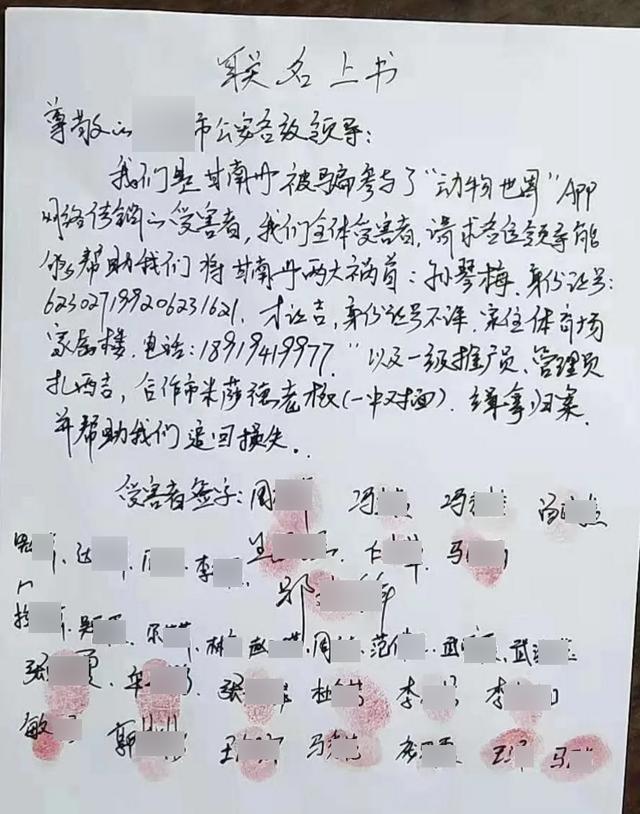 联名上书
尊敬的 市公安各级领导:
我们是甘南州被骗参与了“动物世界”APP
网络传销的受害者,我们全体受害者,请求各位领导能
够帮助我们将甘南州两大祸首:孙琴梅.身份证号:
623027199206231621.才让吉,身份证号不详.家住体育场
家属楼.电话:18919419977.”以及一级推广员、管理员
扎西吉,合作市米莎德老板(一中对面).缉拿归案.
并帮助我们追回损失..
受害者签字:周 冯 冯
李 马
周 范 武 武
张 张 杜 李 李
敏 郭 王 马 王 马